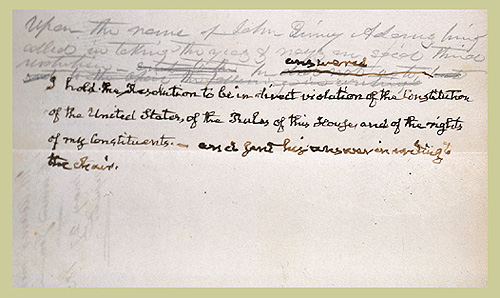 Upon the name of John Quincy Adams being
called in taking the yeas & nays on said third
answered
I hold the Resolution to be in direct violation of the Constitution
of the United States, of the Rules of this House, and of the rights
of my Constituents. — and sent his answer in writing to
the Chair.